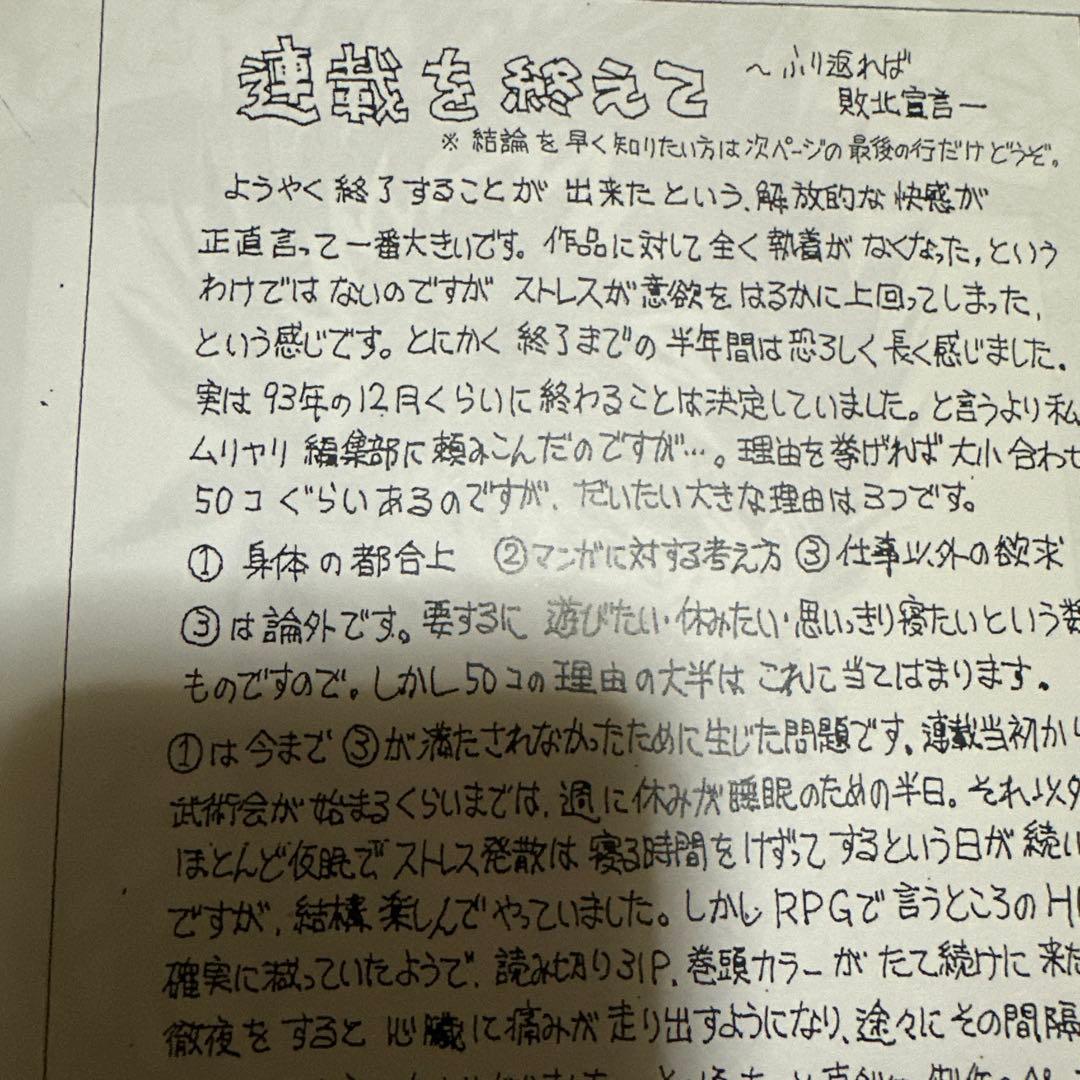 連載を終えて ～ふり返れば
敗北宣言ー
※ 結論を早く知りたい方は次ページの最後の行だけどうぞ。
ようやく終了することが出来たという、解放的な快感が
正直言って一番大きいです。作品に対して全く執着がなくなった、という
わけではないのですがストレスが意欲をはるかに上回ってしまった、
という感じです。とにかく終了までの半年間は恐ろしく長く感じました。
実は93年の12月くらいに終わることは決定していました。と言うより私
ムリヤリ編集部に頼みこんだのですが…。理由を挙げれば大小合わせ
50コぐらいあるのですが、だいたい大きな理由は3つです。
① 身体の都合上 ②マンガに対する考え方 ③仕事以外の欲求
③は論外です。要するに遊びたい・休みたい・思いっきり寝たいという
ものですので。しかし50コの理由の大半はこれに当てはまります。
①は今まで③が満たされなかったために生じた問題です、連載当初から
武術会が始まるくらいまでは、週に休みが睡眠のための半日。それ以外
ほとんど仮眠でストレス発散は寝る時間をけずってするという日が続い
ですが、結構楽しんでやっていました。しかしRPGで言うところのH
確実に減っていたようで、読み切り31P、巻頭カラーがたて続けに来た
徹夜をすると心臓に痛みが走り出すようになり、途々にその間隔